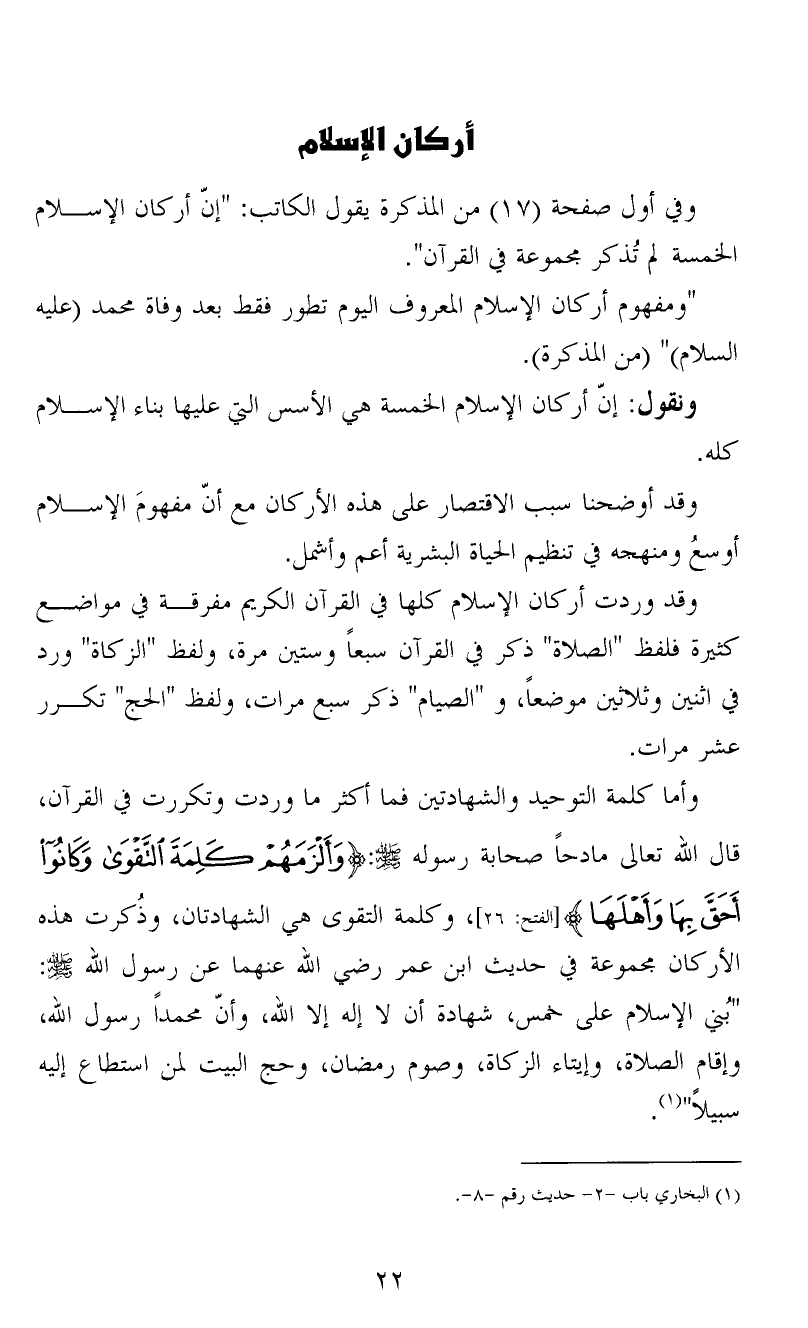 أركان الإسلام
وفي أول صفحة (١٧) من المذكرة يقول الكاتب: "إنّ أركان الإسلام
الخمسة لم تُذكر مجموعة في القرآن".
"ومفهوم أركان الإسلام المعروف اليوم تطور فقط بعد وفاة محمد (عليه
السلام)" (من المذكرة).
ونقول: إنّ أركان الإسلام الخمسة هي الأسس التي عليها بناء الإسلام
كله.
وقد أوضحنا سبب الاقتصار على هذه الأركان مع أنّ مفهومَ الإسلام
أوسعُ ومنهجه في تنظيم الحياة البشرية أعم وأشمل.
وقد وردت أركان الإسلام كلها في القرآن الكريم مفرقة في مواضع
كثيرة فلفظ "الصلاة" ذكر في القرآن سبعاً وستين مرة، ولفظ "الزكاة" ورد
في اثنين وثلاثين موضعاً، و "الصيام" ذكر سبع مرات، ولفظ "الحج" تكرر
عشر مرات.
وأما كلمة التوحيد والشهادتين فما أكثر ما وردت وتكررت في القرآن،
قال الله تعالى مادحاً صحابة رسوله ﷺ: ﴿وَأَلْزَمَهُمْ كَلِمَةَ ٱلتَّقْوَىٰ وَكَانُوٓا۟
أَحَقَّ بِهَا وَأَهْلَهَا﴾ [الفتح: ٢٦]، وكلمة التقوى هي الشهادتان، وذُكرت هذه
الأركان مجموعة في حديث ابن عمر رضي الله عنهما عن رسول الله ﷺ:
"بُني الإسلام على خمس، شهادة أن لا إله إلا الله، وأنّ محمداً رسول الله،
وإقام الصلاة، وإيتاء الزكاة، وصوم رمضان، وحج البيت لمن استطاع إليه
سبيلاً"(١).
(١) البخاري باب -٢- حديث رقم -٨-.
٢٢